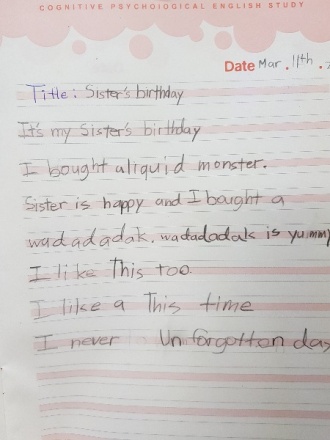 COGNITIVE PSYCHOIOGICAL ENGLISH STUDY
Date Mar. 11th.
Title: Sister's birthday
It's my Sister's birthday
I bought aliquid monster.
Sister is happy and I bought a
wadadadak. wadadadak is yummy
I like This too.
I like a This time
I never Un forgotton day